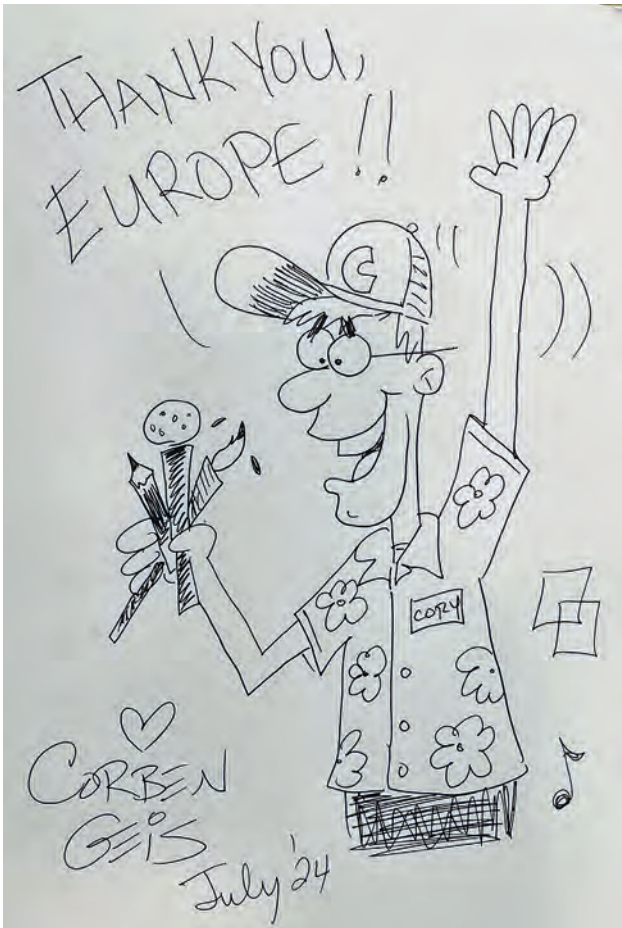 THANK YOU,
EUROPE!!
C
CORY
CORBEN
GEIS
July '24